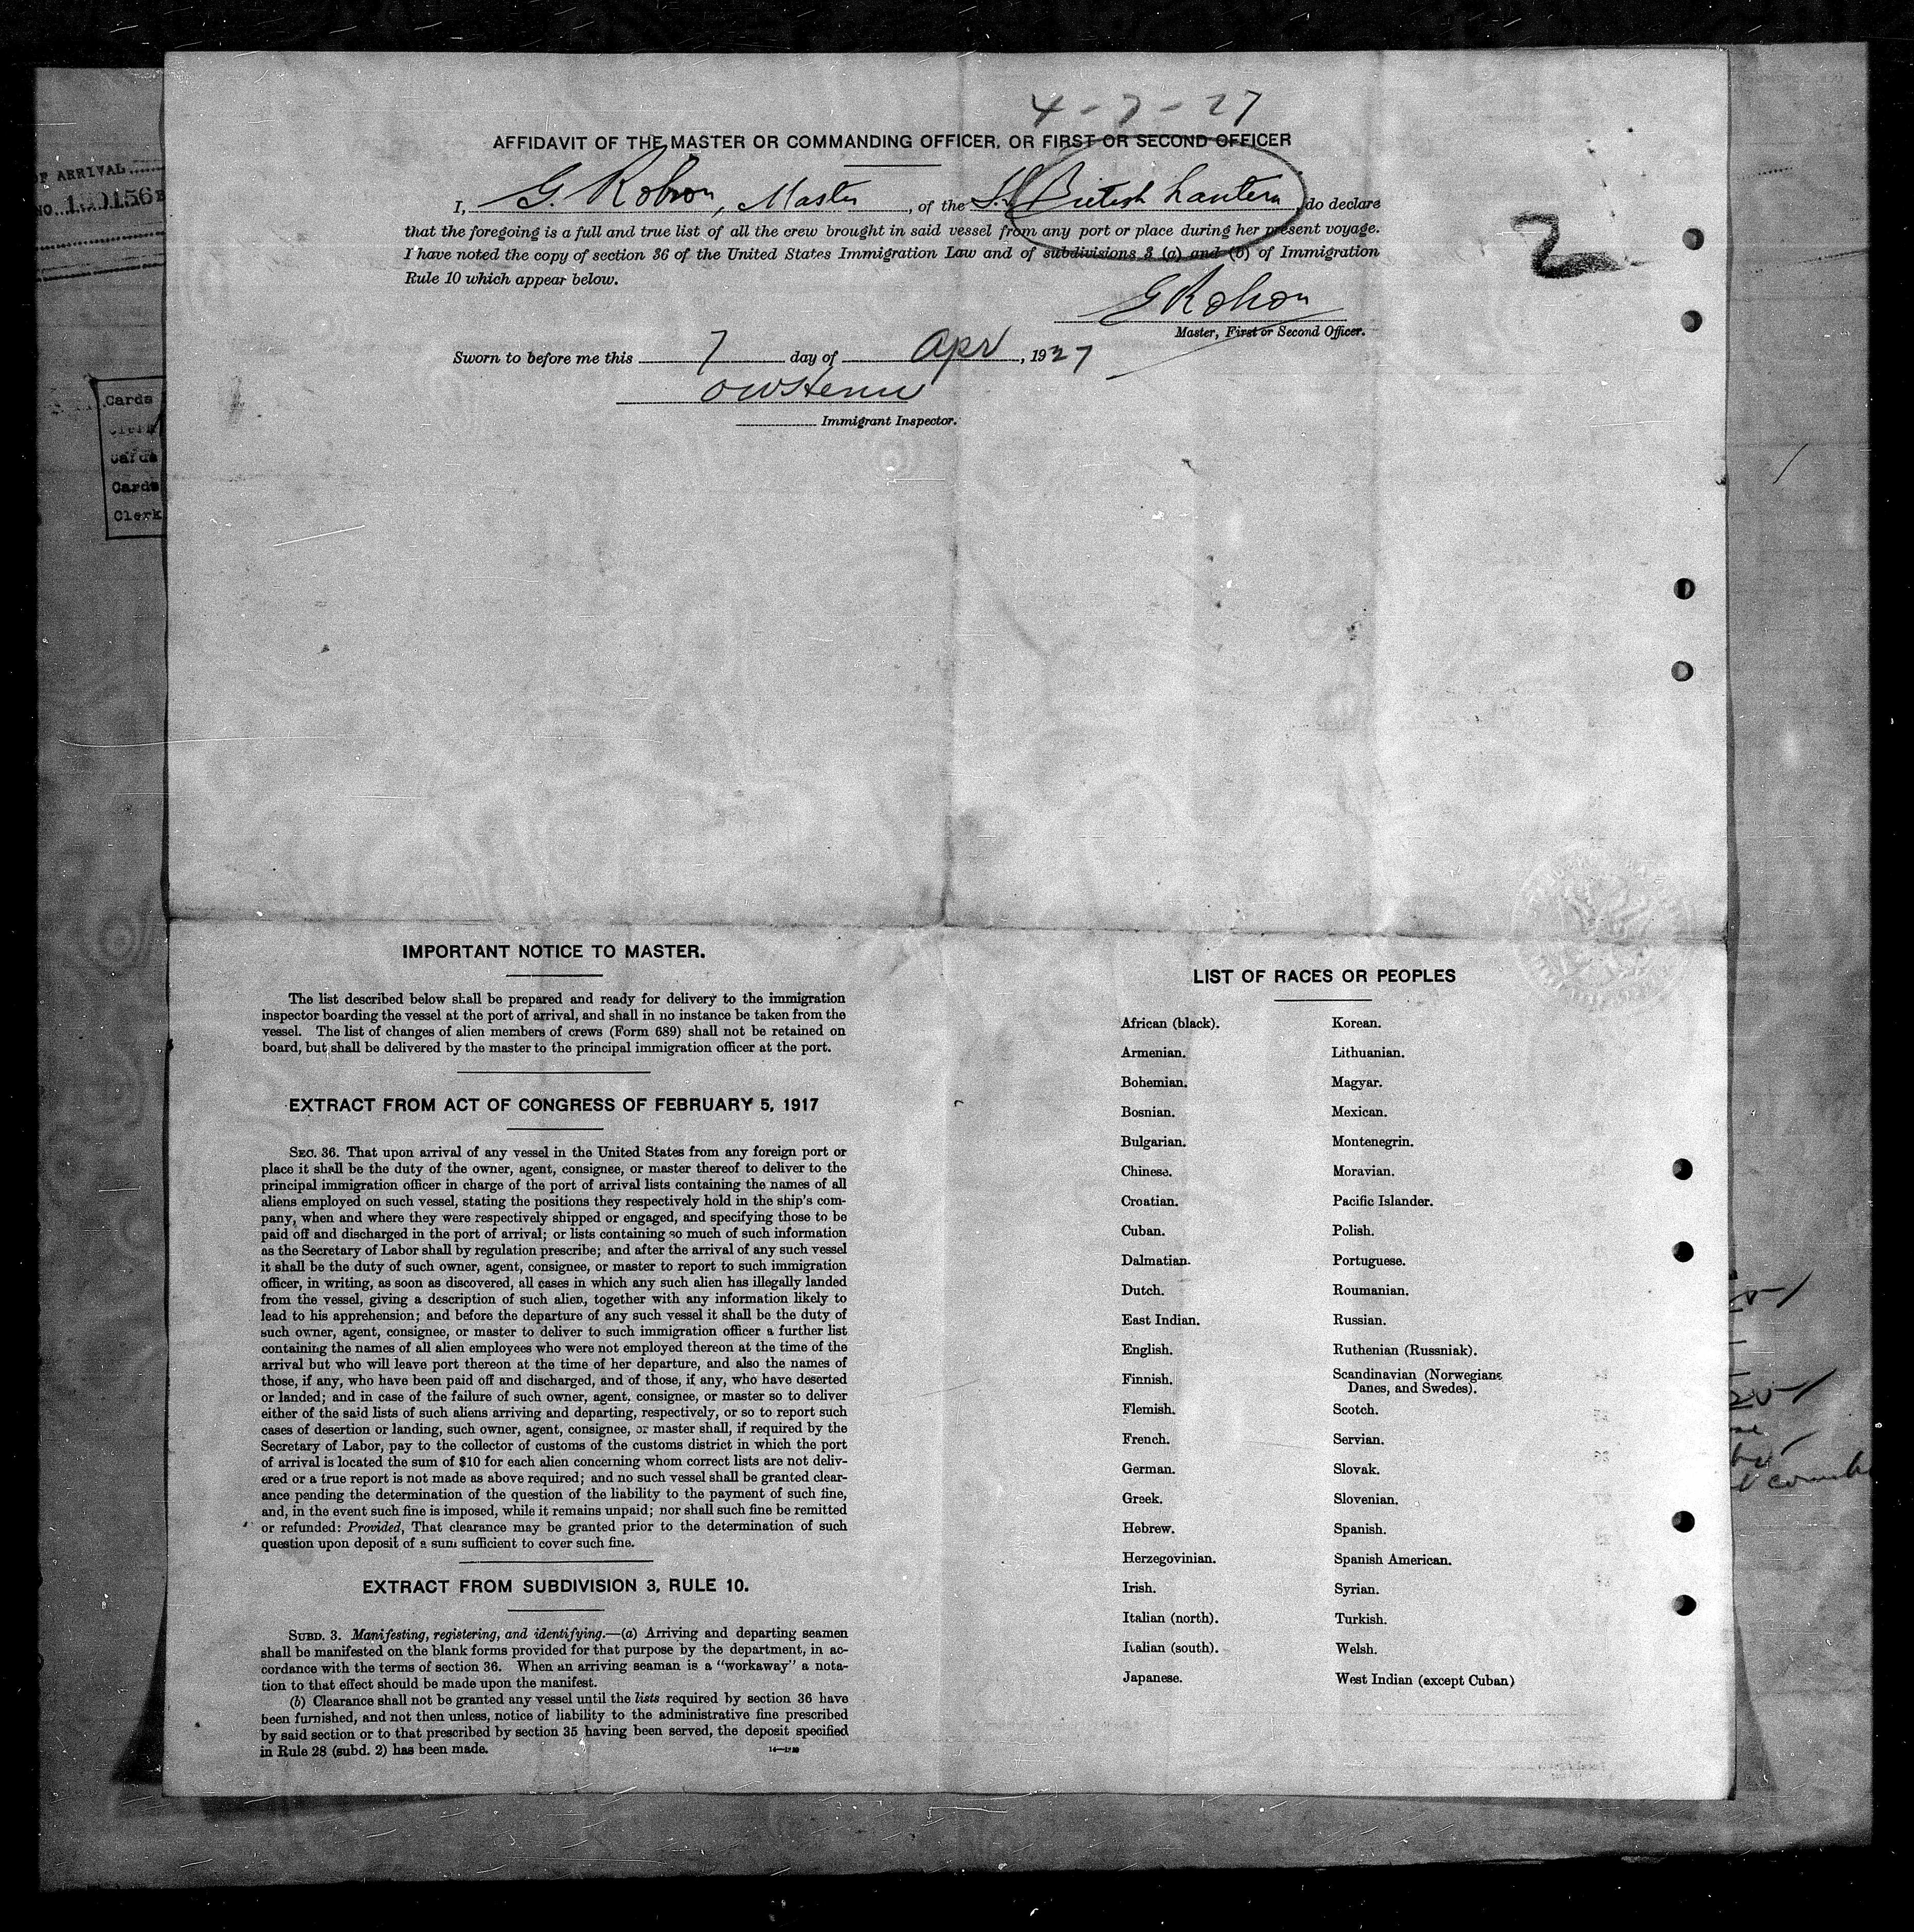 4-7-27
AFFIDAVIT OF THE MASTER OR COMMANDING OFFICER, OR FIRST OR SECOND OFFICER
I, G. Robson, Master, of the S.S. British Lantern, do declare
that the foregoing is a full and true list of all the crew brought in said vessel from any port or place during her present voyage.
I have noted the copy of section 36 of the United States Immigration Law and of subdivisions 3 (a) and (b) of Immigration
Rule 10 which appear below.
G Robson
Master, First or Second Officer.
Sworn to before me this 7 day of Apr, 1927
Immigrant Inspector.
2
OF ARRIVAL
NO.
Cards
Clerk
Cards
Cards
Clerk
IMPORTANT NOTICE TO MASTER.
The list described below shall be prepared and ready for delivery to the immigration
inspector boarding the vessel at the port of arrival, and shall in no instance be taken from the
vessel. The list of changes of alien members of crews (Form 689) shall not be retained on
board, but shall be delivered by the master to the principal immigration officer at the port.
EXTRACT FROM ACT OF CONGRESS OF FEBRUARY 5, 1917
SEC. 36. That upon arrival of any vessel in the United States from any foreign port or
place it shall be the duty of the owner, agent, consignee, or master thereof to deliver to the
principal immigration officer in charge of the port of arrival lists containing the names of all
aliens employed on such vessel, stating the positions they respectively hold in the ship's com-
pany, when and where they were respectively shipped or engaged, and specifying those to be
paid off and discharged in the port of arrival; or lists containing so much of such information
as the Secretary of Labor shall by regulation prescribe; and after the arrival of any such vessel
it shall be the duty of such owner, agent, consignee, or master to report to such immigration
officer, in writing, as soon as discovered, all cases in which any such alien has illegally landed
from the vessel, giving a description of such alien, together with any information likely to
lead to his apprehension; and before the departure of any such vessel it shall be the duty of
such owner, agent, consignee, or master to deliver to such immigration officer a further list
containing the names of all alien employees who were not employed thereon at the time of the
arrival but who will leave port thereon at the time of her departure, and also the names of
those, if any, who have been paid off and discharged, and of those, if any, who have deserted
or landed; and in case of the failure of such owner, agent, consignee, or master so to deliver
either of the said lists of such aliens arriving and departing, respectively, or so to report such
cases of desertion or landing, such owner, agent, consignee, or master shall, if required by the
Secretary of Labor, pay to the collector of customs of the customs district in which the port
of arrival is located the sum of $10 for each alien concerning whom correct lists are not deliv-
ered or a true report is not made as above required; and no such vessel shall be granted clear-
ance pending the determination of the question of the liability to the payment of such fine,
and, in the event such fine is imposed, while it remains unpaid; nor shall such fine be remitted
or refunded: Provided, That clearance may be granted prior to the determination of such
question upon deposit of a sum sufficient to cover such fine.
EXTRACT FROM SUBDIVISION 3, RULE 10.
SUBD. 3. Manifesting, registering, and identifying.—(a) Arriving and departing seamen
shall be manifested on the blank forms provided for that purpose by the department, in ac-
cordance with the terms of section 36. When an arriving seaman is a "workaway" a nota-
tion to that effect should be made upon the manifest.
(b) Clearance shall not be granted any vessel until the lists required by section 36 have
been furnished, and not then unless, notice of liability to the administrative fine prescribed
by said section or to that prescribed by section 35 having been served, the deposit specified
in Rule 28 (subd. 2) has been made.
LIST OF RACES OR PEOPLES
African (black).
Armenian.
Bohemian.
Bosnian.
Bulgarian.
Chinese.
Croatian.
Cuban.
Dalmatian.
Dutch.
East Indian.
English.
Finnish.
Flemish.
French.
German.
Greek.
Hebrew.
Herzegovinian.
Irish.
Italian (north).
Italian (south).
Japanese.
Korean.
Lithuanian.
Magyar.
Mexican.
Montenegrin.
Moravian.
Pacific Islander.
Polish.
Portuguese.
Roumanian.
Russian.
Ruthenian (Russniak).
Scandinavian (Norwegians,
Danes, and Swedes).
Scotch.
Servian.
Slovak.
Slovenian.
Spanish.
Spanish American.
Syrian.
Turkish.
Welsh.
West Indian (except Cuban)